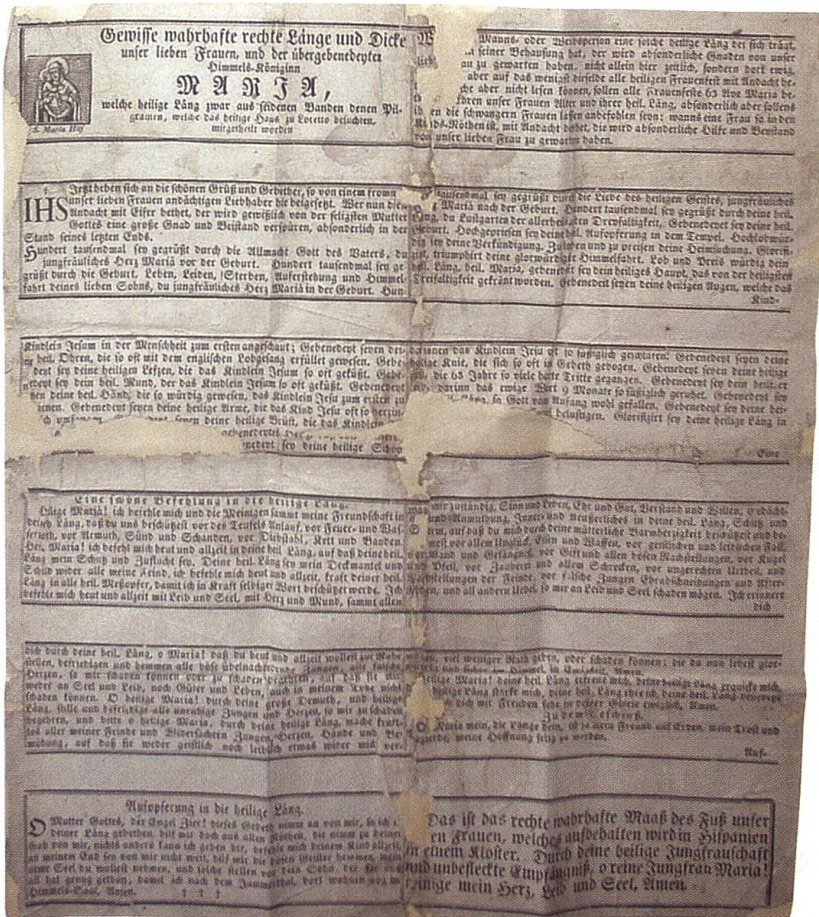 Gewisse wahrhafte rechte Länge und Dicke
unser lieben Frauen, und der übergebenedeyten
Himmels-Königinn
MARJA,
welche heilige Läng zwar aus seidenen Banden denen Pil-
gramen, welche das heilige Haus zu Loretto besuchten,
mitgetheilt worden
S. Maria Hilf
Manns- oder Weibsperson eine solche heilige Läng bei sich trägt,
seiner Behausung hat, der wird absonderliche Gnaden von unser
zu gewarten haben, nicht allein hier zeitlich, sondern dort ewig,
aber auf das wenigst dieselbe alle heiligen Frauenfest mit Andacht be-
aber nicht lesen können, sollen alle Frauenfeste 63 Ave Maria be-
Ehren unser Frauen Alter und ihrer heil. Läng, absonderlich aber sollens
die schwangern Frauen lassen anbefohlen seyn: wanns eine Frau so in den
Nöthen ist, mit Andacht bethet, die wird absonderliche Hilfe und Beystand
von unser lieben Frau zu gewarten haben.
IHS
Jetzt heben sich an die schönen Grüß und Gebether, so von einem fromm
unser lieben Frauen andächtigen Liebhaber hie beigesetzt. Wer nun die
Andacht mit Eifer bethet, der wird gewißlich von der seligsten Mutter
Gottes eine große Gnad und Beistand verspüren, absonderlich in der
Stand seines letzten Ends.
Hundert tausendmal sey gegrüßt durch die Allmacht Gott des Vaters, du
jungfräuliches Herz Mariä vor der Geburt. Hundert tausendmal sey ge-
grüßt durch die Geburt, Leben, Leiden, Sterben, Auferstehung und Himmel-
fahrt deines lieben Sohns, du jungfräuliches Herz Mariä in der Geburt. Hun-
tausendmal sey gegrüßt durch die Liebe des heiligen Geistes, jungfräuliches
Mariä nach der Geburt. Hundert tausendmal sey gegrüßt durch deine heil.
Läng, du Lustgarten der allerheiligsten Dreifaltigkeit, Gebenedeyt sey deine heil.
Geburt. Hochgepriesen sey deine heil. Aufopferung in dem Tempel. Hochlobwür-
dig sey deine Verkündigung. Zuloben und zu preisen deine Heimsuchung. Glorifi-
zirt, triumphirt deine glorwürdige Himmelfahrt. Lob und Preis würdig dein
heil. Läng, heil. Mariä, gebenedeyt sey dein heiliges Haupt, das von der heiligsten
Dreifaltigkeit gekrönt worden. Gebenedeit seyen deine heiligen Augen, welche das
Kind-
Kindlein Jesum in der Menschheit zum ersten angeschaut; Gebenedeyt seyen dei-
ne heil. Ohren, die so oft mit dem englischen Lobgesang erfüllet gewesen. Gebe-
deyt sey deine heiligen Lefzen, die das Kindlein Jesum so oft geküßt. Gebe-
nedeyt sey dein heil. Mund, der das Kindlein Jesum so oft geküßt. Gebenedeyt
deine heil. Händ, die so würdig gewesen, das Kindlein Jesu zum ersten zu
Gebenedeyt seyen deine heilige Arme, die das Kind Jesu oft so herzin-
seyen deine heilige Brüst, die das Kindlein
sey deine heilige Schoo
darinnen das Kindlein Jesu oft so süßiglich Gebenedeyt seyen deine
heilige Knie, die sich so oft in Gebeth gebogen. Gebenedeyt seyen deine heilige
die 63 Jahre so viele harte Tritte gegangen. Gebenedeyt sey dein heil.
darinn das ewige Wort 9 Monate so süßiglich geruhet. Gebenedeyt sey
Läng, so Gott von Anfang wohl gefallen. Gebenedeyt sey deine hei-
belustigen. Glorifizirt sey deine heilige Läng in
Eine
Eine schöne Befehlung in die heilige Läng.
heilige Mariä! ich befehle mich und die Meinigen sammt meine Freundschaft in
deine Läng, daß du uns beschützest vor des Teufels Anlauf, vor Feuer- und Was-
vor Armuth, Sünd und Schanden, vor Diebstahl, Kett und Banden.
Maria! ich befehl mich heut und allzeit in deine heil Läng, auf daß deine heil.
Läng mein Schutz und Zuflucht sey. Deine heil. Läng sey mein Deckmantel und
Schild wider alle meine Feind, ich befehle mich heut und allzeit, kraft deiner heil.
Läng in alle heil. Meßopfer, damit ich in Kraft selbiger Wort beschützet werde. Ich
befehle mich heut und allzeit mit Leib und Seel, mit Herz und Mund, sammt allen
was mir zuständig, Sinn und Leben, Ehr und Gut, Verstand und Willen,
und Anmuthung, Inner- und Aeußerliches in deine heil. Läng, Schutz und
auf daß du mich deine mütterliche Barmherzigkeit beschützest und be-
vor allem Unglück, Eisen und Waffen, vor geistlichen und leiblichen Fall,
Wand und Gefängniß, vor Gift und allen bösen Nachstellungen, vor Kugel
und Pfeil, vor Zauberei und allem Schrecken, vor ungerechten Urtheil, und
Nachstellungen der Feinde, vor falsche Zungen Ehrabschneidungen und After-
reden, und all andern Uebel, so mir an Leib und Seel schaden mögen. Ich erinnere
dich
dich durch deine heil. Läng, o Maria! daß du heut und allzeit wollest zur Ruhe
stellen, befriedigen und hemmen alle böse übelnachredende Zungen, alle falsche
Herzen, so mir schaden können oder zu schaden begehren, auf daß sie mir
weder an Seel und Leib, noch Güter und Leben, auch in meinem Tode nicht
schaden können. O heilige Maria! durch deine große Demuth, und heilige
Läng, stille und befriedige alle unruhige Zungen und Herzen, so mir zu schaden
begehren, und bitte o heilige Maria, durch deine heilige Läng, mache kraft-
los aller meiner Feinde und Widersachern Zungen, Herzen, Hände und Be-
mühung, auf daß sie weder geistlich noch leiblich etwas wider mich ver-
viel weniger Rath geben, oder schaden können; die du nun lebest glor-
Himmel in Ewigkeit. Amen.
heilige Maria! deine heil. Läng erfreue mich, deine heilige Läng erquicke mich,
heilige Läng stärke mich, deine heil. Läng ehre ich, deine heil. Läng
dich mit Freuden sehe in deiner Glorie ewiglich, Amen.
Zu dem Beschluß.
O Maria mein, die Länge dein, ist ja mein Freund auf Erden, mein Trost und
meine Hoffnung selig zu werden.
Auf-
Aufopferung in die heilige Läng.
O Mutter Gottes, der Engel Zier! dieses Gebeth nimm an von mir, so ich
deiner Läng gebethen, hilf mir doch aus allen Nöthen, die nimm zu deiner
von mir, nichts anders kann ich geben dir, befehle mich deinem Kind allzeit,
an meinem End sey von mir nicht weit, hilf mir die bösen Geister hemmen, mein
arme Seel du wollest nehmen, und solche stellen vor dein Sohn, der für uns
all hat genug gethan; damit ich nach dem Jammerthal, dort wohnen mög im
Himmels-Saal, Amen. † † †
Das ist das rechte wahrhafte Maaß des Fuß unser
lieben Frauen, welches aufbehalten wird in Hispanien
in einem Kloster. Durch deine heilige Jungfrauschaft
und unbefleckte Empfängniß, o reine Jungfrau Maria!
reinige mein Herz, Leib und Seel, Amen.